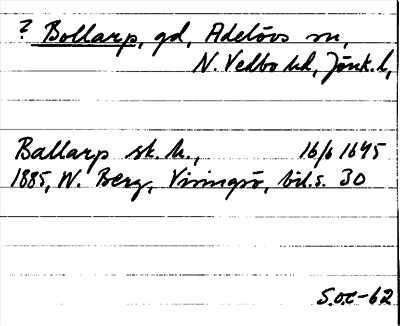 ? Bollarp, gd, Adelövs sn,
N. Vedbo hd, Jönk. l,
Ballarp sk. h., 16/6 1645
1885, W. Berg, Visingsö, bil. s. 30
S.O.E-62